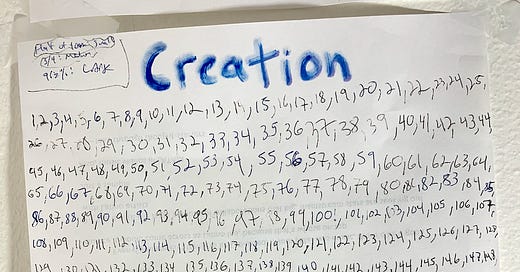 Creation
1,2,3,4,5,6,7,8,9,10,11,12,13,14,15,16,17,18,19,20,21,22,23,24,25,
26,27,28,29,30,31,32,33,34,35,36,37,38,39,40,41,42,43,44
45,46,47,48,49,50,51,52,53,54,55,56,57,58,59,60,61,62,63,64,
65,66,67,68,69,70,71,72,73,74,75,76,77,78,79,80,81,82,83,84,85
86,87,88,89,90,91,92,93,94,95,96,97,98,99,100!,101,102,103,104,105,106,107,
108,109,110,111,112,113,114,115,116,117,118,119,120,121,122,123,124,125,126,127,128
129,130,131,132,133,134,135,136,137,138,139,140,141,142,143,144,145,146,147,148